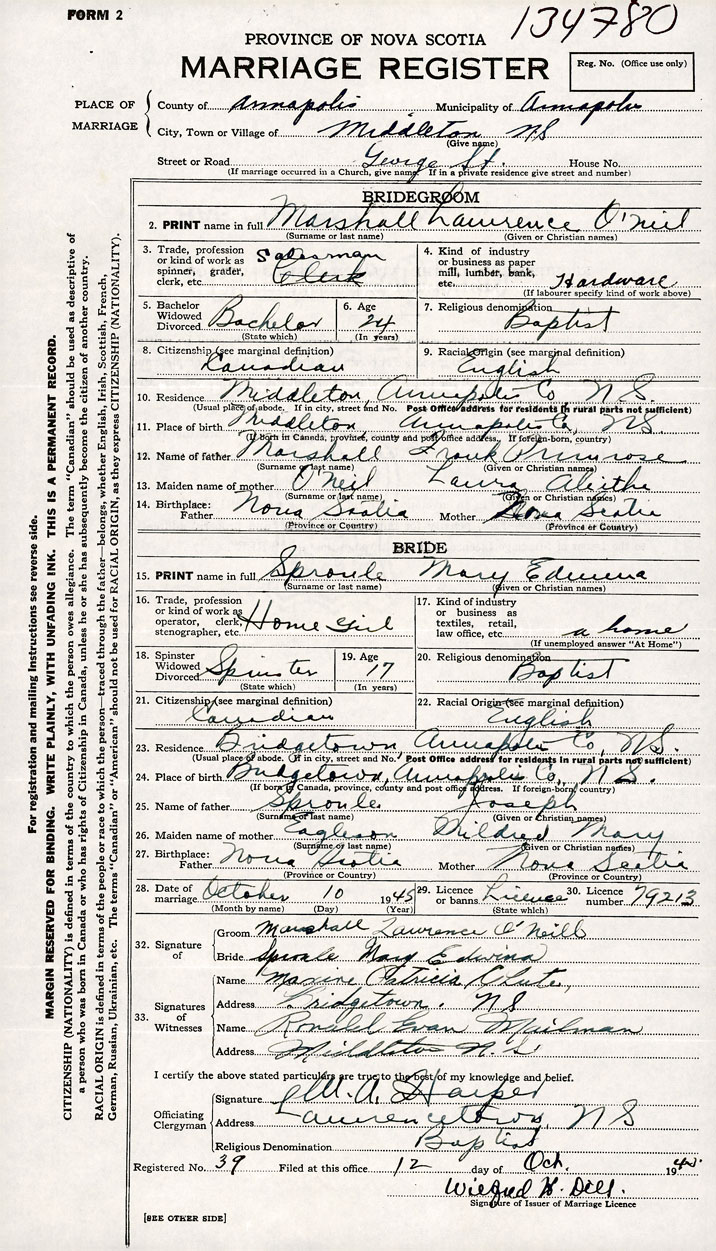 FORM 2
134780
PROVINCE OF NOVA SCOTIA
MARRIAGE REGISTER
Reg. No. (Office use only)
PLACE OF MARRIAGE
County of Annapolis Municipality of Annapolis
City, Town or Village of Middleton NS
(Give name)
Street or Road George St. House No.
(If marriage occurred in a Church, give name. If in a private residence give street and number)
BRIDEGROOM
2. PRINT name in full Marshall Lawrence O'Neil
(Surname or last name) (Given or Christian names)
3. Trade, profession or kind of work as spinner, grader, clerk, etc. Salesman Clerk
4. Kind of industry or business as paper mill, lumber, bank, etc. Hardware
(If labourer specify kind of work above)
5. Bachelor Widowed Divorced Bachelor
(State which)
6. Age 24
(In years)
7. Religious denomination Baptist
8. Citizenship (see marginal definition) Canadian
9. Racial Origin (see marginal definition) English
10. Residence Middleton, Annapolis Co N.S.
(Usual place of abode. If in city, street and No. Post Office address for residents in rural parts not sufficient)
11. Place of birth Middleton Annapolis Co, NS.
(If born in Canada, province, county and post office address. If foreign-born, country)
12. Name of father Marshall Frank Primrose
(Surname or last name) (Given or Christian names)
13. Maiden name of mother O'Neil Laura Aleitha
(Surname or last name) (Given or Christian names)
14. Birthplace: Father Nova Scotia Mother Nova Scotia
(Province or Country) (Province or Country)
BRIDE
15. PRINT name in full Sproule Mary Edwina
(Surname or last name) (Given or Christian names)
16. Trade, profession or kind of work as operator, clerk, stenographer, etc. Home Girl
17. Kind of industry or business as textiles, retail, law office, etc. a home
(If unemployed answer "At Home")
18. Spinster Widowed Divorced Spinster
(State which)
19. Age 17
(In years)
20. Religious denomination Baptist
21. Citizenship (see marginal definition) Canadian
22. Racial Origin (see marginal definition) English
23. Residence Bridgetown, Annapolis Co, N.S.
(Usual place of abode. If in city, street and No. Post Office address for residents in rural parts not sufficient)
24. Place of birth Bridgetown, Annapolis Co, N.S.
(If born in Canada, province, county and post office address. If foreign-born, country)
25. Name of father Sproule Joseph
(Surname or last name) (Given or Christian names)
26. Maiden name of mother Eagleson Mildred Mary
(Surname or last name) (Given or Christian names)
27. Birthplace: Father Nova Scotia Mother Nova Scotia
(Province or Country) (Province or Country)
28. Date of marriage October 10 1945
(Month by name) (Day) (Year)
29. Licence or banns Licence
(State which)
30. Licence number 79213
32. Signature of
Groom Marshall Lawrence O'Neill
Bride Sproule Mary Edwina
33. Signatures of Witnesses
Name Maxine Patricia Chute,
Address Bridgetown. NS
Name Ronald Evan Mailman
Address Middleton N.S
I certify the above stated particulars are true to the best of my knowledge and belief.
Officiating Clergyman
Signature M. A. Harper
Address Lawrencetown, NS
Religious Denomination Baptist
Registered No. 39 Filed at this office 12 day of Oct. 1945
Wilfred H. Dill.
Signature of Issuer of Marriage Licence
[SEE OTHER SIDE]
For registration and mailing instructions see reverse side.
MARGIN RESERVED FOR BINDING. WRITE PLAINLY, WITH UNFADING INK. THIS IS A PERMANENT RECORD.
CITIZENSHIP (NATIONALITY) is defined in terms of the country to which the person owes allegiance. The term "Canadian" should be used as descriptive of
a person who was born in Canada or who has rights of Citizenship in Canada, unless he or she has subsequently become the citizen of another country.
RACIAL ORIGIN is defined in terms of the people or race to which the person—traced through the father—belongs, whether English, Irish, Scottish, French,
German, Russian, Ukrainian, etc. The terms "Canadian" or "American" should not be used for RACIAL ORIGIN, as they express CITIZENSHIP (NATIONALITY).